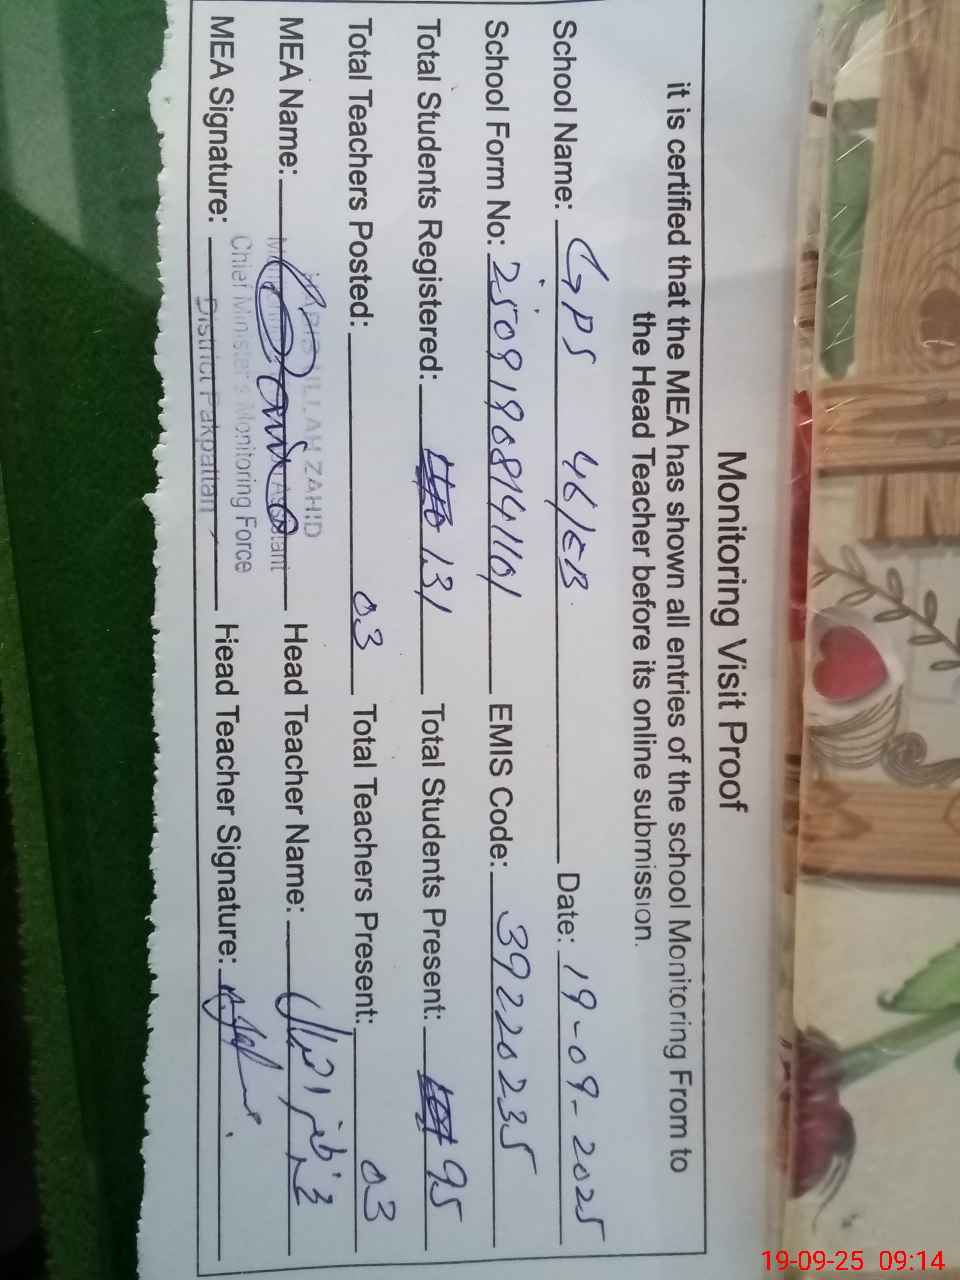 Monitoring Visit Proof
it is certified that the MEA has shown all entries of the school Monitoring From to
the Head Teacher before its online submission.
School Name: GPS 46/EB Date: 19-09-2025
School Form No: 250919081411101 EMIS Code: 39220235
Total Students Registered: 131 Total Students Present: 95
Total Teachers Posted: 03 Total Teachers Present: 03
ZAHID
MEA Name: Head Teacher Name: اقبال
Chief Minister's Monitoring Force
MEA Signature: Head Teacher Signature:
District Pakpattan
19-09-25 09:14